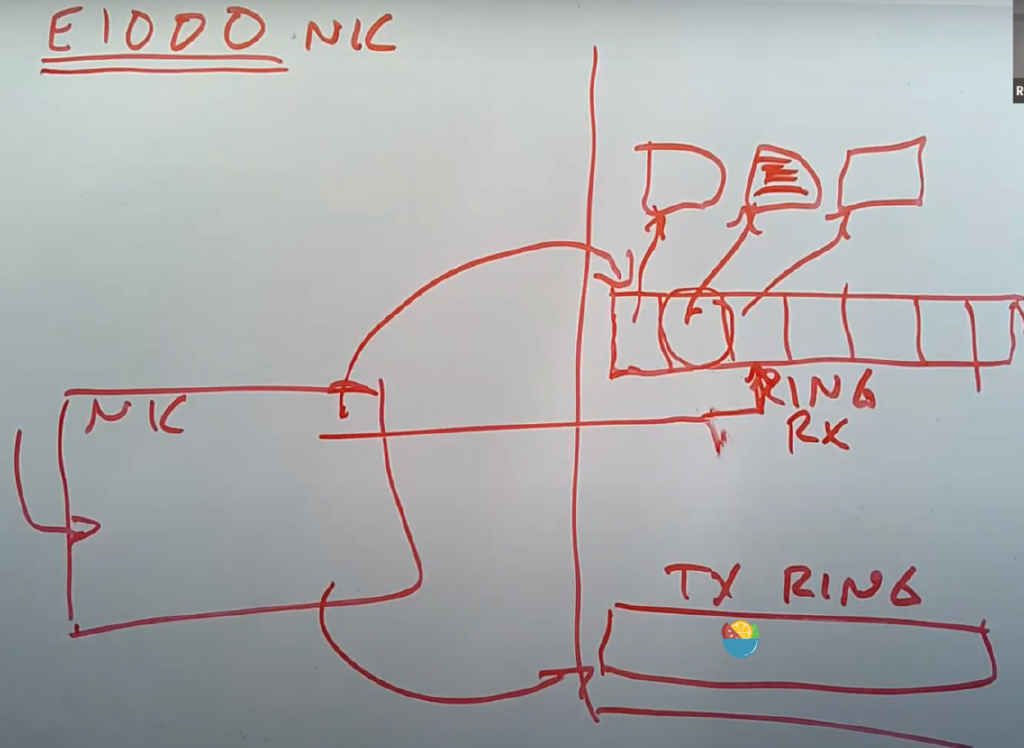 E1000 NIC
R
NIC
RING
RX
TX RING